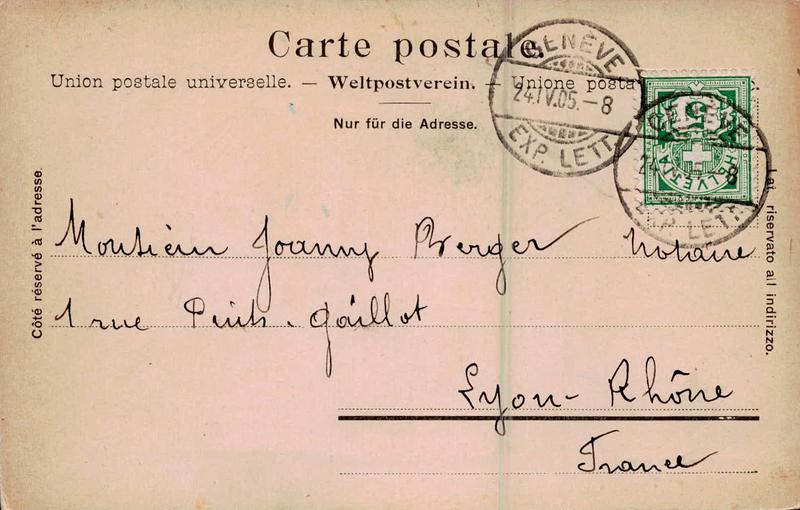 Carte postale.
Union postale universelle. — Weltpostverein. — Unione posta
Nur für die Adresse.
GENÈVE
24.IV.05.-8
EXP. LETT.
GENÈVE
24 8
EXP. LETT.
5
HELVETIA
Côté réservé à l'adresse.
Lat. riservato all indirizzo.
Monsieur Joanny Berger Notaire
1 rue Puits-Gaillot
Lyon - Rhône
France